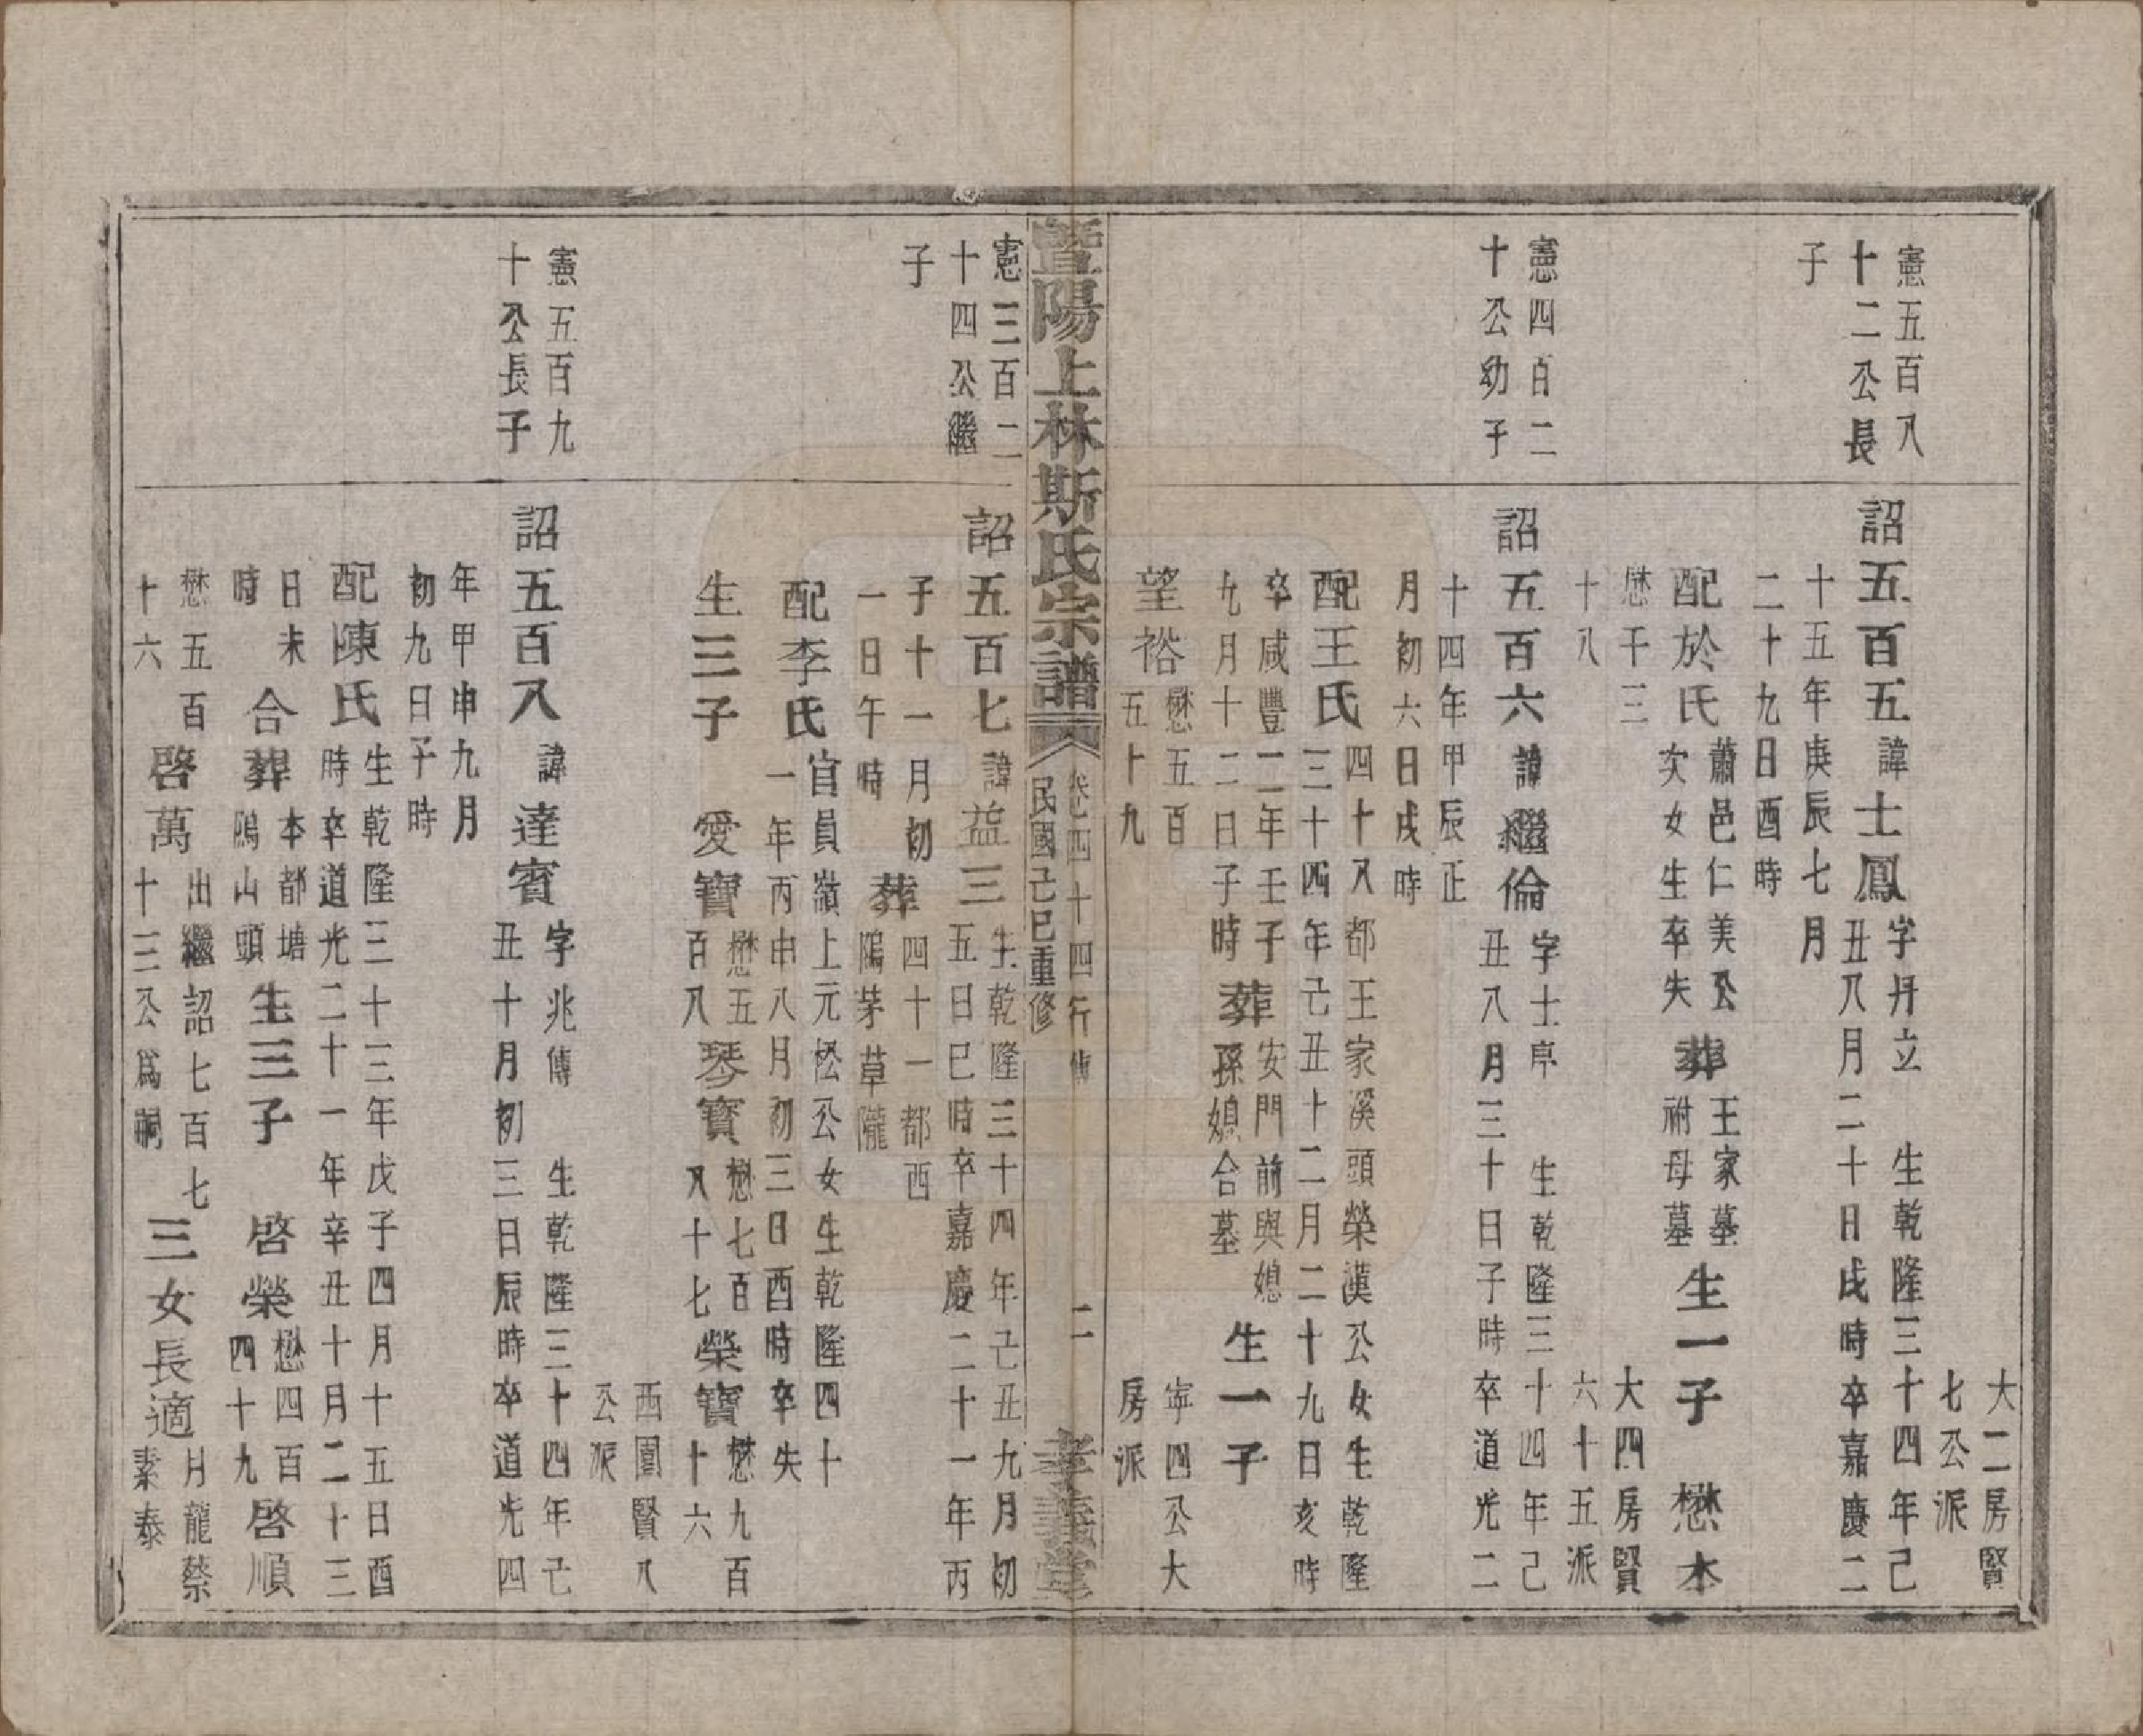 大二房賢
七公派
憲五百八
十二公長
子
詔五百五 諱士鳳 字丹立 生乾隆三十四年己
丑八月二十日戌時卒嘉慶二
十五年庚辰七月
二十九日酉時
配於氏 蕭邑仁美公
次女生卒失
葬 王家墓
祔母墓
生一子 懋本
懋千三
十八
大四房賢
六十五派
憲四百二
十公幼子
詔五百六 諱繼倫 字士亭 生乾隆三十四年己
丑八月三十日子時卒道光二
十四年甲辰正
月初六日戌時
配王氏 四十八都王家溪頭榮漢公女生乾隆
三十四年己丑十二月二十九日亥時
卒咸豐二年壬子
九月十二日子時
葬 安門前與媳
孫媳合墓
生一子
望裕 懋五百
五十九
寧四公大
房派
暨陽上林斯氏宗譜
卷四十四行傳 二
民國己巳重修
孝義堂
憲三百二
十四公繼
子
詔五百七 諱益三 生乾隆三十四年己丑九月初
五日巳時卒嘉慶二十一年丙
子十一月初
一日午時
葬 四十一都西
隖茅草隴
配李氏 官員嶺上元松公女生乾隆四十
一年丙申八月初三日酉時卒失
生三子 愛寶 懋五
百八
琴寶 懋七百
八十七
榮寶 懋九百
十六
西園賢八
公派
憲五百九
十公長子
詔五百八 諱達賓 字兆傳 生乾隆三十四年己
丑十月初三日辰時卒道光四
年甲申九月
初九日子時
配陳氏 生乾隆三十三年戊子四月十五日酉
時卒道光二十一年辛丑十月二十三
日未
時
合葬 本都塘
隖山頭
生三子 啓榮 懋四百
四十九
啓順
懋五百
十六
啓萬 出繼詔七百七
十三公爲嗣
三女長適 月龍蔡
素泰